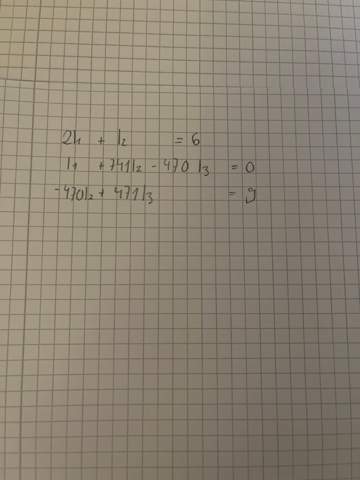 2I1 + I2 = 6
I1 + 741I2 - 470 I3 = 0
-470I2 + 471I3 = 9